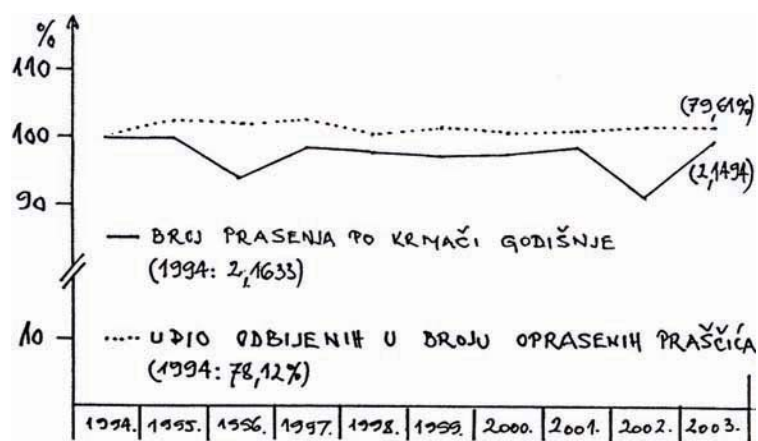 %
110
(79,61%)
100
(2,1494)
90
BROJ PRASENJA PO KRMAČI GODIŠNJE
(1994: 2,1633)
10
UDIO ODBIJENIH U BROJU OPRASENIH PRAŠČIĆA
(1994: 78,12%)
1994. 1995. 1996. 1997. 1998. 1999. 2000. 2001. 2002. 2003.